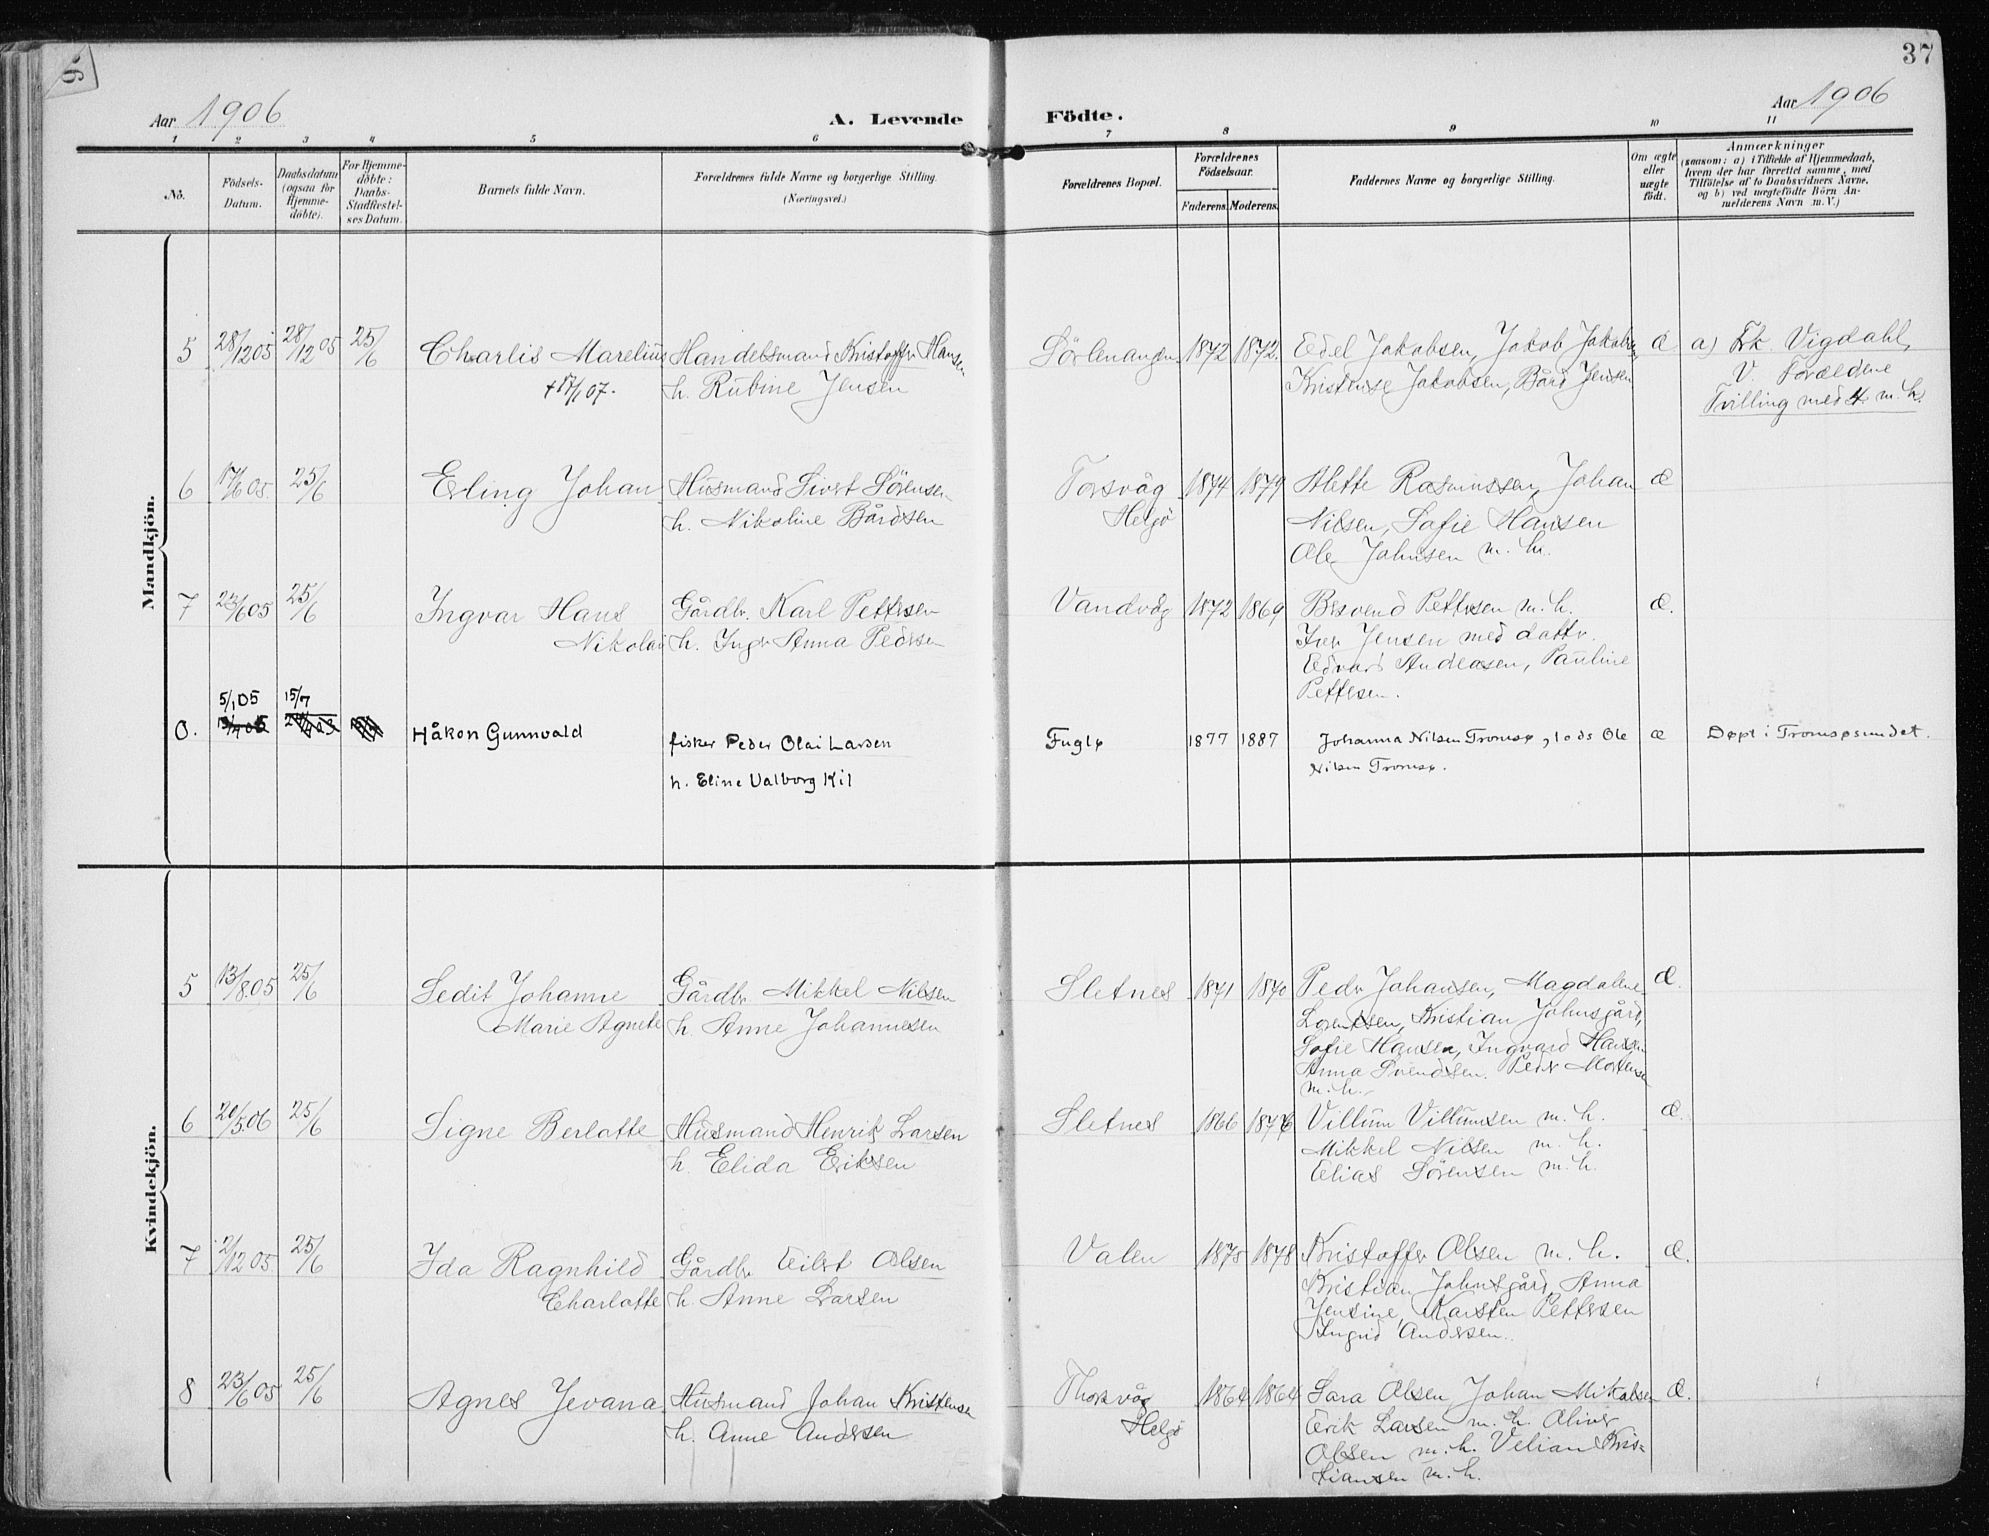 37
Aar 1906
A. Levende Födte.
Aar 1906
1 2 3 4 5 6 7 8 9 10 11
No.
Födsels-Datum.
Daabsdatum (ogsaa for Hjemmedöbte).
For Hjemmedöbte: Daabs-Stadfestelses Datum.
Barnets fulde Navn.
Forældrenes fulde Navne og borgerlige Stilling.
(Næringsvei.)
Forældrenes Bopæl.
Forældrenes Födselsaar.
Faderens. Moderens.
Faddernes Navne og borgerlige Stilling.
Om ægte eller uægte födt.
Anmærkninger
(saasom: a) i Tilfælde af Hjemmedaab,
hvem der har forrettet samme, med
Tilföielse af to Daabsvidners Navne,
og b) ved uægtefödte Börn Anmelderens Navn m. V.)
Mandkjön.
5 28/12 05 28/12 05 25/6 Charlis Marelius Handelsmand Kristoffer Hansen Sörlenangen 1872 1872. Edel Jakobsen, Jakob Jakobsen Æ a) Frk Vigdahl,
+ 17/1 07. h. Rubine Jensen Kristense Jakobsen, Bård Jensen V. Forældrene
Tvilling med 4 m. k.
6 17/6 05. 25/6 Erling Johan Husmand Sivert Sörensen Torsvåg 1874 1879 Alette Rasmussen, Johan Æ
h. Nikoline Bårdsen Helgö Nilsen, Sofie Hansen
Ole Johnsen m. h.
7 23/6 05 25/6 Ingvar Hans Gårdbr. Karl Pettersen Vandvåg 1872 1869 Bersvend Pettersen m. h. Æ.
Nikolai h. Inger Anna Pedersen Iver Jensen med datter
Edvard Andreasen, Pauline
Pettersen.
5/1 05 15/7
0. Håkon Gunnvald fisker Peder Olai Larsen Fuglø 1877 1887 Johanna Nilsen Tromsø, lods Ole æ Døpt i Tromsøsundet.
h. Eline Valborg Kil Nilsen Tromsø.
Kvindekjön.
5 13/8. 05 25/6 Sedit Johanne Gårdbr. Mikkel Nilsen Sletnes 1871 1870 Peder Johansen, Magdalene Æ.
Marie Agnete h. Anne Johannesen Lorentsen, Kristian Johnsgård,
Sofie Hansen, Ingvard Hansen
Anna Svendsen. Peder Mortensen
m. h.
6 20/5. 06 25/6 Signe Berlotte Husmand Henrik Larsen Sletnes 1866 1876 Villum Villumsen m. h. Æ.
h. Elida Eriksen Mikkel Nilsen m. h.
Elias Sörensen m. h.
7 2/12 05. 25/6 Ida Ragnhild Gårdbr. Eilert Olsen Valen 1875 1878 Kristoffer Olsen m. h. Æ.
Charlotte h. Anne Larsen Kristian Johnsgård, Anna
Jensine, Karsten Pettersen
Ingrid Andersen.
8 23/6 05 25/6 Agnes Jevana Husmand Johan Kristensen Thorsvåg 1864 1864 Sara Olsen, Johan Mikalsen Æ.
h. Anne Andersen Helgö Erik Larsen m. h. Oliver
Olsen m. h. Velian Kris-
tiansen m. h.